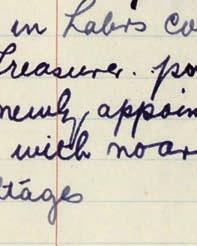 in Labrs co
Treasurer. po
newly appoin
with noar
ttages